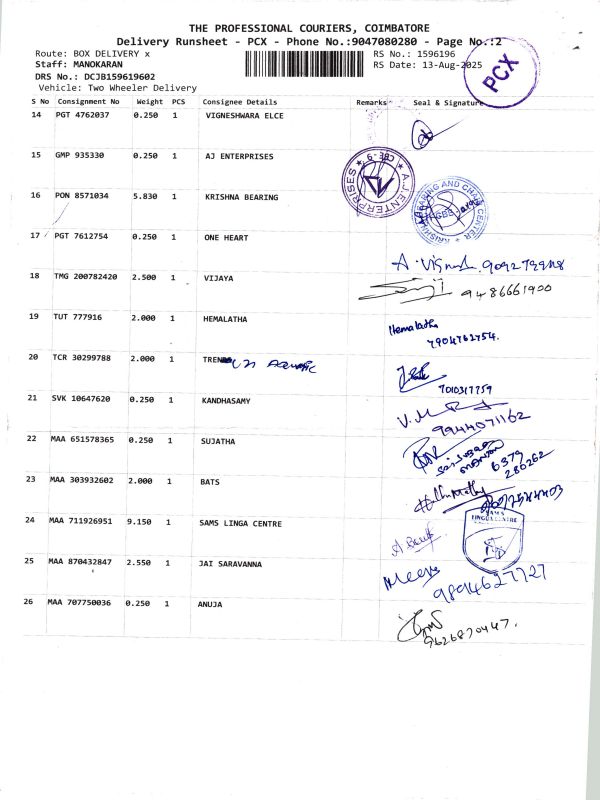 THE PROFESSIONAL COURIERS, COIMBATORE
Delivery Runsheet - PCX - Phone No.:9047080280 - Page No.:2
Route: BOX DELIVERY x RS No.: 1596196
Staff: MANOKARAN RS Date: 13-Aug-2025
DRS No.: DCJB159619602
Vehicle: Two Wheeler Delivery
PCX
S No Consignment No Weight PCS Consignee Details Remarks Seal & Signature
14 PGT 4762037 0.250 1 VIGNESHWARA ELCE
15 GMP 935330 0.250 1 AJ ENTERPRISES
A.J.ENTERPRISES CBE-9
16 PON 8571034 5.830 1 KRISHNA BEARING
KRISHNA BEARING AND CHAIN CENTER
17 PGT 7612754 0.250 1 ONE HEART
18 TMG 200782420 2.500 1 VIJAYA
9486661900
19 TUT 777916 2.000 1 HEMALATHA
Hemalatha
7904762754.
20 TCR 30299788 2.000 1 TREN
7010317759
21 SVK 10647620 0.250 1 KANDHASAMY
9944071162
22 MAA 651578365 0.250 1 SUJATHA
6379
286262
23 MAA 303932602 2.000 1 BATS
24 MAA 711926951 9.150 1 SAMS LINGA CENTRE
SAMS
LINGUA CENTRE
25 MAA 870432847 2.550 1 JAI SARAVANNA
Meena
9894627727
26 MAA 707750036 0.250 1 ANUJA
9626870447.